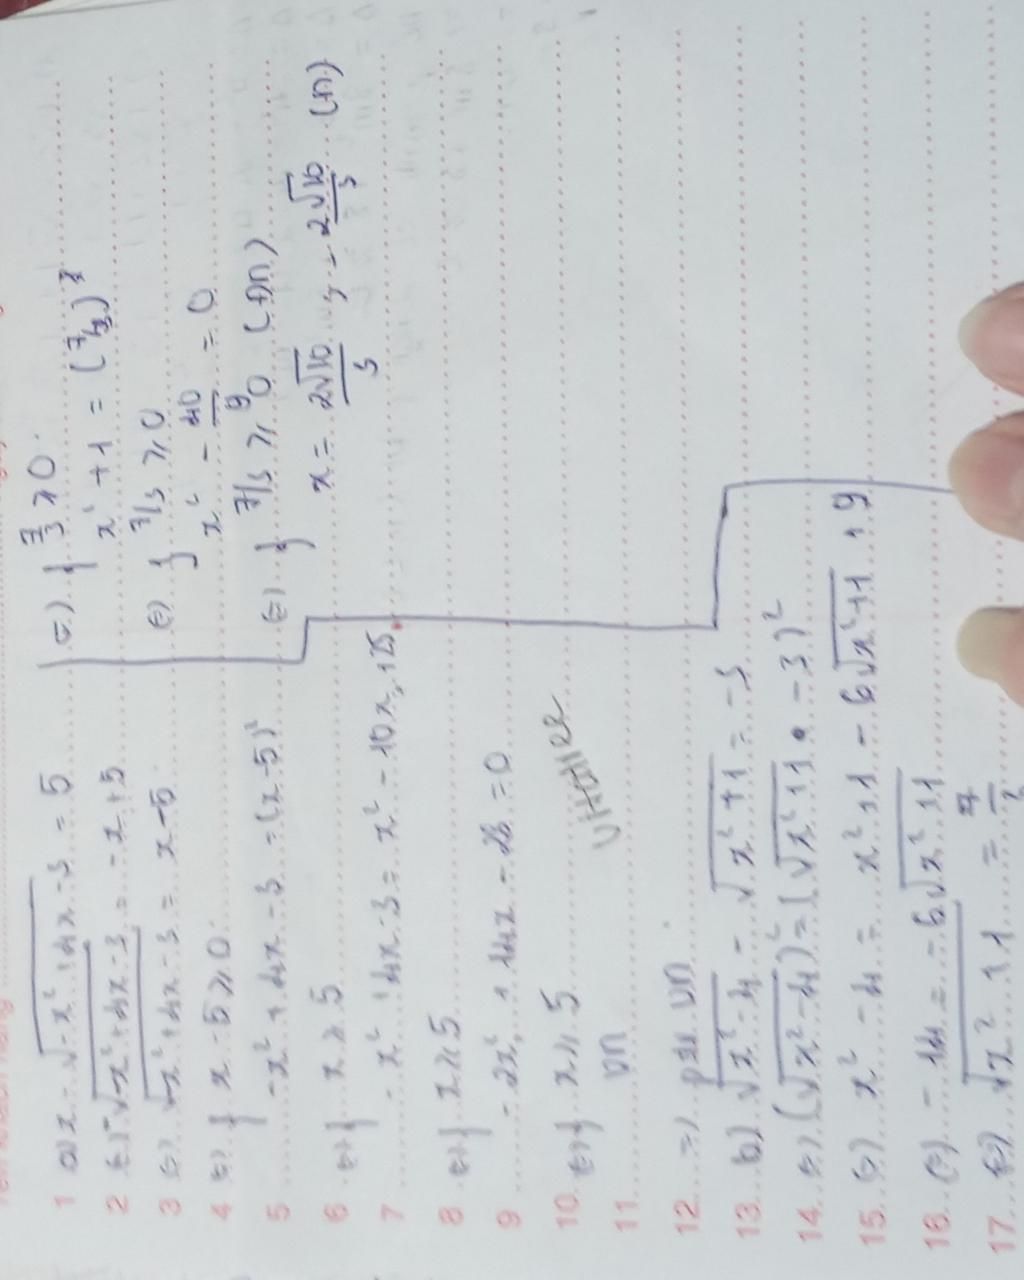 1 a) x - √-x² + 4x - 3 = 5
2 ⇔ -√-x² + 4x - 3 = -x + 5
3 ⇔ √-x² + 4x - 3 = x - 5
4 ⇔ { x - 5 ≥ 0
5 -x² + 4x - 3 = (x - 5)²
6 ⇔ { x ≥ 5
7 -x² + 4x - 3 = x² - 10x + 25
8 ⇔ { x ≥ 5
9 -2x² + 14x - 28 = 0
10 ⇔ { x ≥ 5
11 vn
12 => ptr vn
13 b) √x² - 4 - √x² + 1 = -3
14 ⇔ (√x² - 4)² = (√x² + 1 - 3)²
15 ⇔ x² - 4 = x² + 1 - 6√x² + 1 + 9
16 ⇔ -14 = -6√x² + 1
17 ⇔ √x² + 1 = 7/3
⇔ { 7/3 ≥ 0
x² + 1 = (7/3)²
⇔ { 7/3 ≥ 0
x² - 40/9 = 0
⇔ { 7/3 ≥ 0 (đn)
x = 2√10/3 , - 2√10/3 (n)